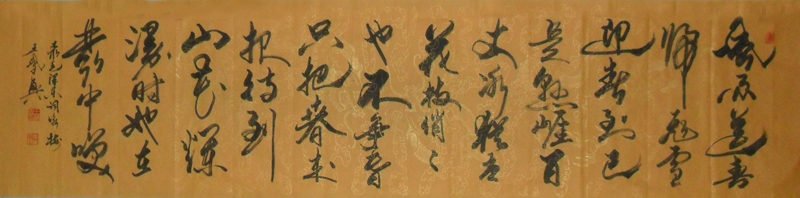 风雨送春
归飛雪
迎春到已
是懸崖百
丈冰猶有
花枝俏々
也不争春
只把春来
报待到
山花爛
漫时她在
叢中笑
录毛泽东词咏梅